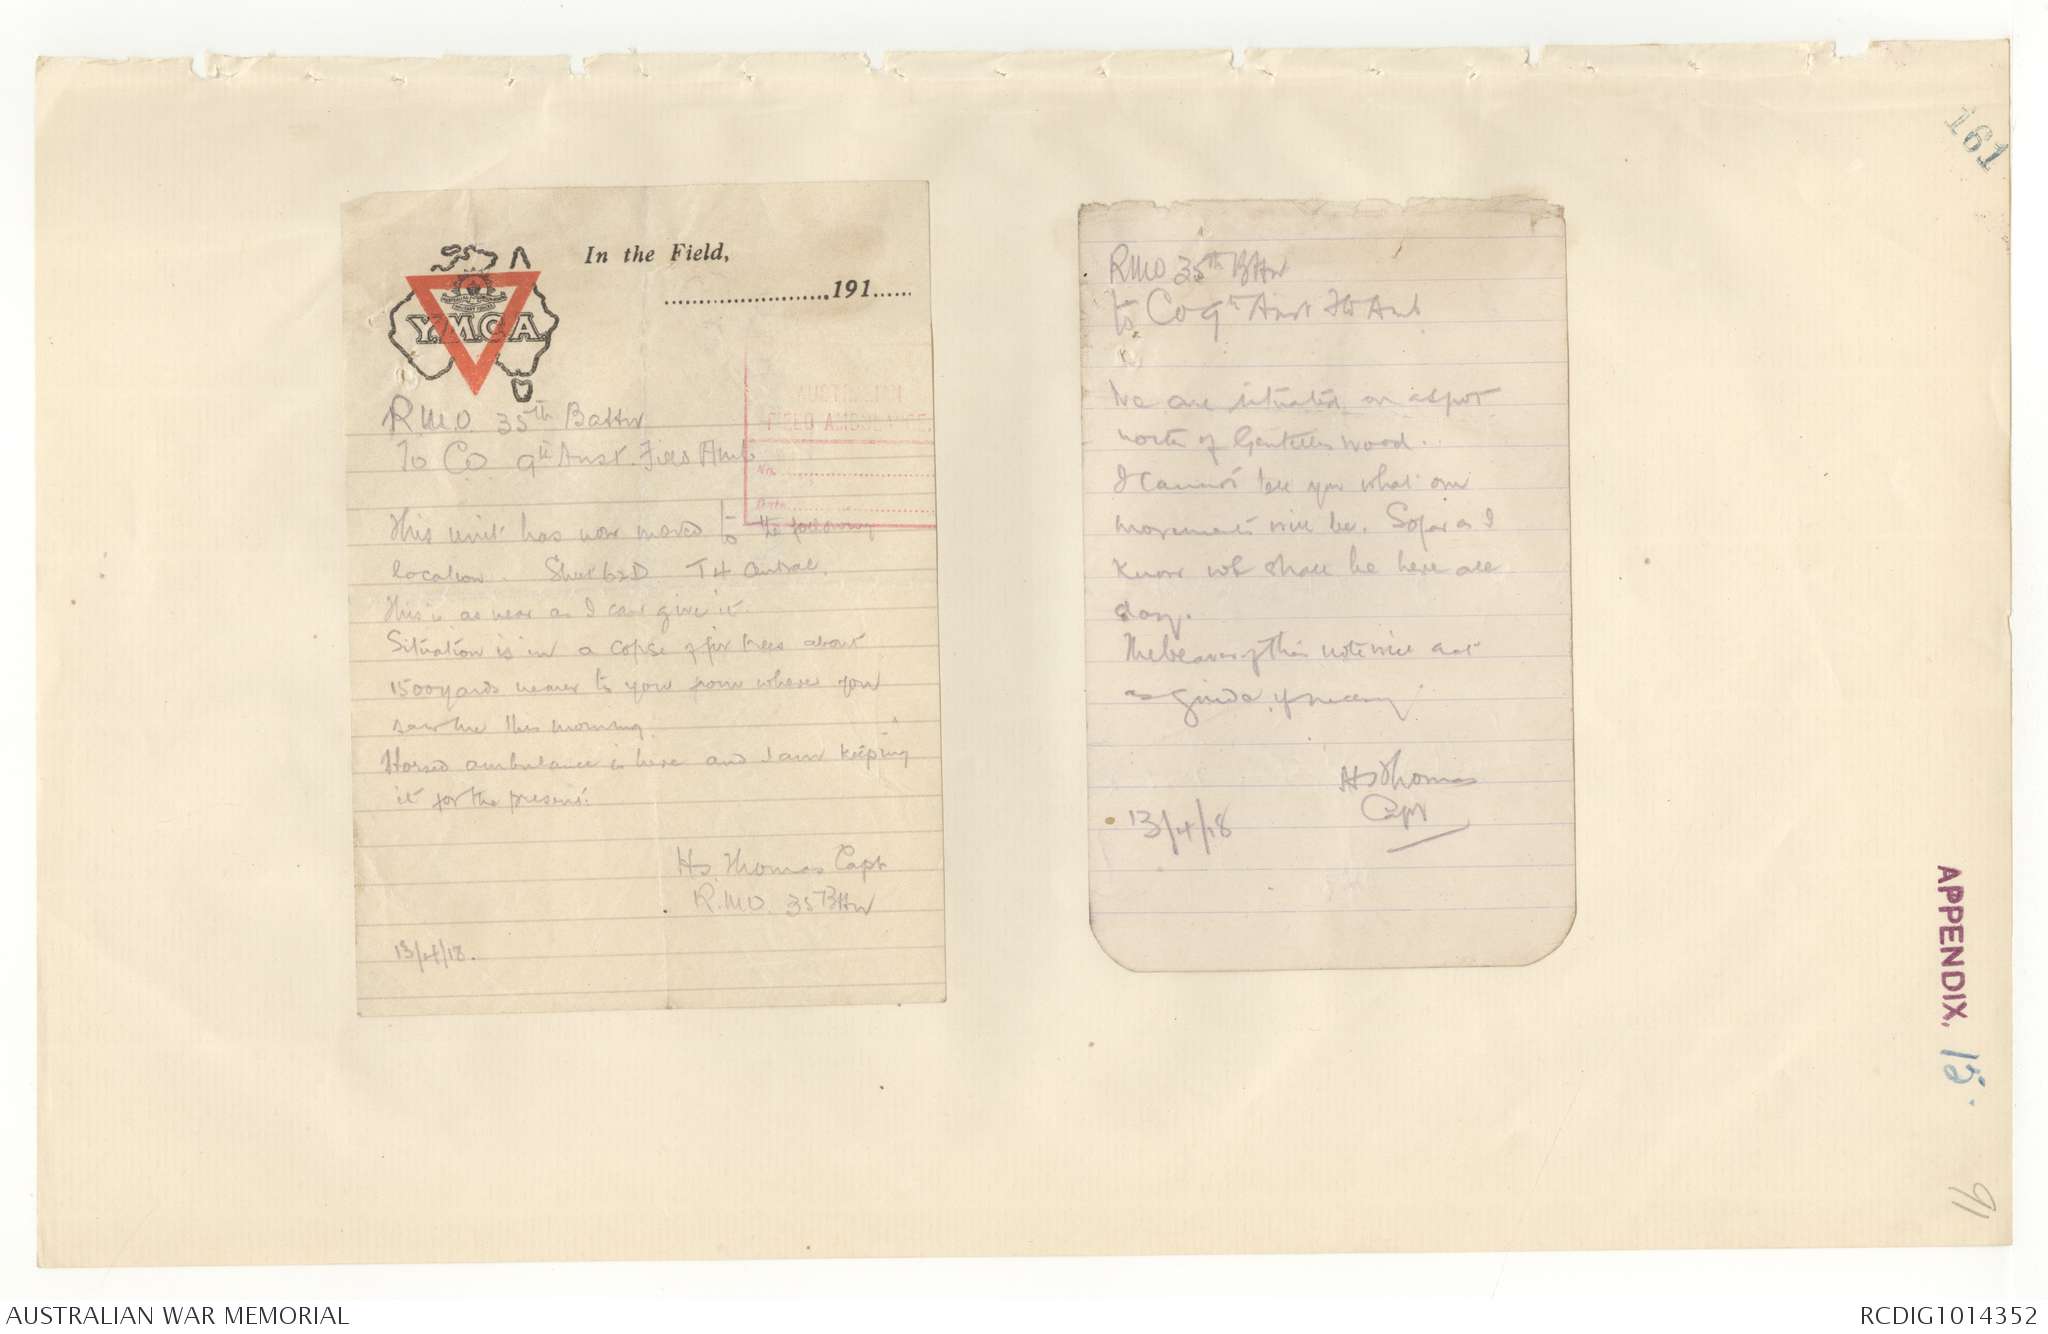 161
In the Field,
.........................191......
Y.M.C.A.
AUSTRALIAN
FIELD AMBULANCE.
No.
Date
R.M.O. 35th Battn
To CO 9th Aust. Field Amb
This unit has now moved to the following
location. Sheet 62D T4 Central.
This is as near as I can give it.
Situation is in a copse of fir trees about
1500 yards nearer to you from where you
saw me this morning.
Horsed ambulance is here and I am keeping
it for the present.
HS. Thomas Capt
R.M.O. 35 Battn
13/4/18.
RMO 35th Battn
To CO 9th Aust Fd Amb
We are situated on a spot
north of Gentelles wood.
I cannot tell you what our
movements will be. So far as I
know we shall be here all
day.
The bearer of this note will act
as guide, if necessary
HS Thomas
Capt
13/4/18
APPENDIX, 15.
91
AUSTRALIAN WAR MEMORIAL
RCDIG1014352